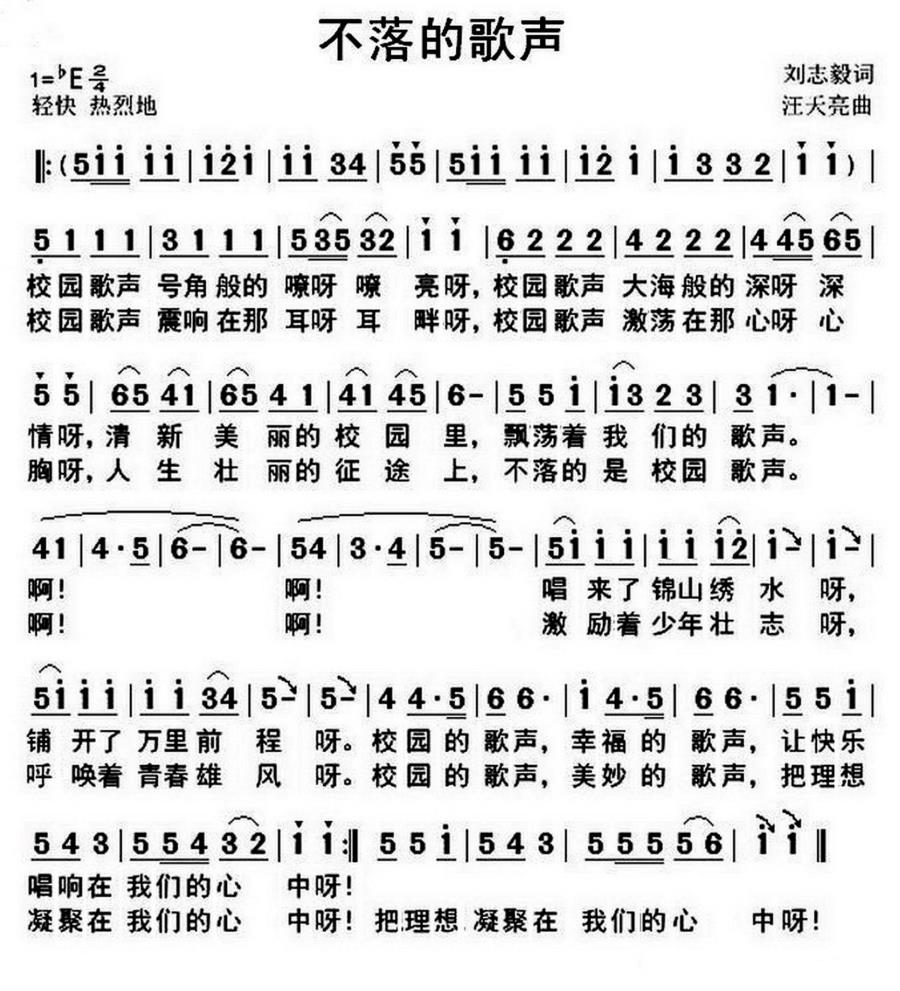 不落的歌声
1=♭E 2/4
刘志毅词
轻快 热烈地
汪天亮曲
‖:(5i̇i̇ i̇i̇|i̇2̇i̇|i̇i̇ 34|55|5i̇i̇ i̇i̇|i̇2̇ i̇|i̇ 3 3 2|i̇ i̇)|
5̣ 1 1 1|3 1 1 1|5 35 32|1 1|6̣ 2 2 2|4 2 2 2|4 45 65|
校园歌声 号角般的 嘹呀嘹 亮呀,校园歌声 大海般的 深呀 深
校园歌声 震响在那 耳呀 耳 畔呀,校园歌声 激荡在那 心呀 心
5 5|65 41|65 4 1|41 45|6-|5 5 i̇|i̇3 2 3|3 1·|1-|
情呀,清 新 美 丽的 校 园 里, 飘荡着 我 们的 歌声。
胸呀,人 生 壮 丽的 征 途 上, 不落的 是 校园 歌声。
41|4·5|6-|6-|54|3·4|5-|5-|5i̇ i̇ i̇|i̇ i̇ i̇2̇|i̇-|i̇-|
啊! 啊! 唱 来了 锦山 绣 水 呀,
啊! 啊! 激 励着 少年 壮 志 呀,
5i̇ i̇ i̇|i̇ i̇ 34|5-|5-|4 4·5|6 6·|i̇ 4·5|6 6·|5 5 i̇|
铺 开了 万里 前 程 呀。校园 的 歌声, 幸福 的 歌声,让快乐
呼 唤着 青春 雄 风 呀。校园 的 歌声, 美妙 的 歌声,把理想
5 4 3|5 5 4 3 2|1 1:‖ 5 5 i̇|5 4 3|5 5 5 5 6|i̇ i̇‖
唱响在 我们的心 中呀!
凝聚在 我们的心 中呀!把理想 凝聚在 我们的心 中呀!